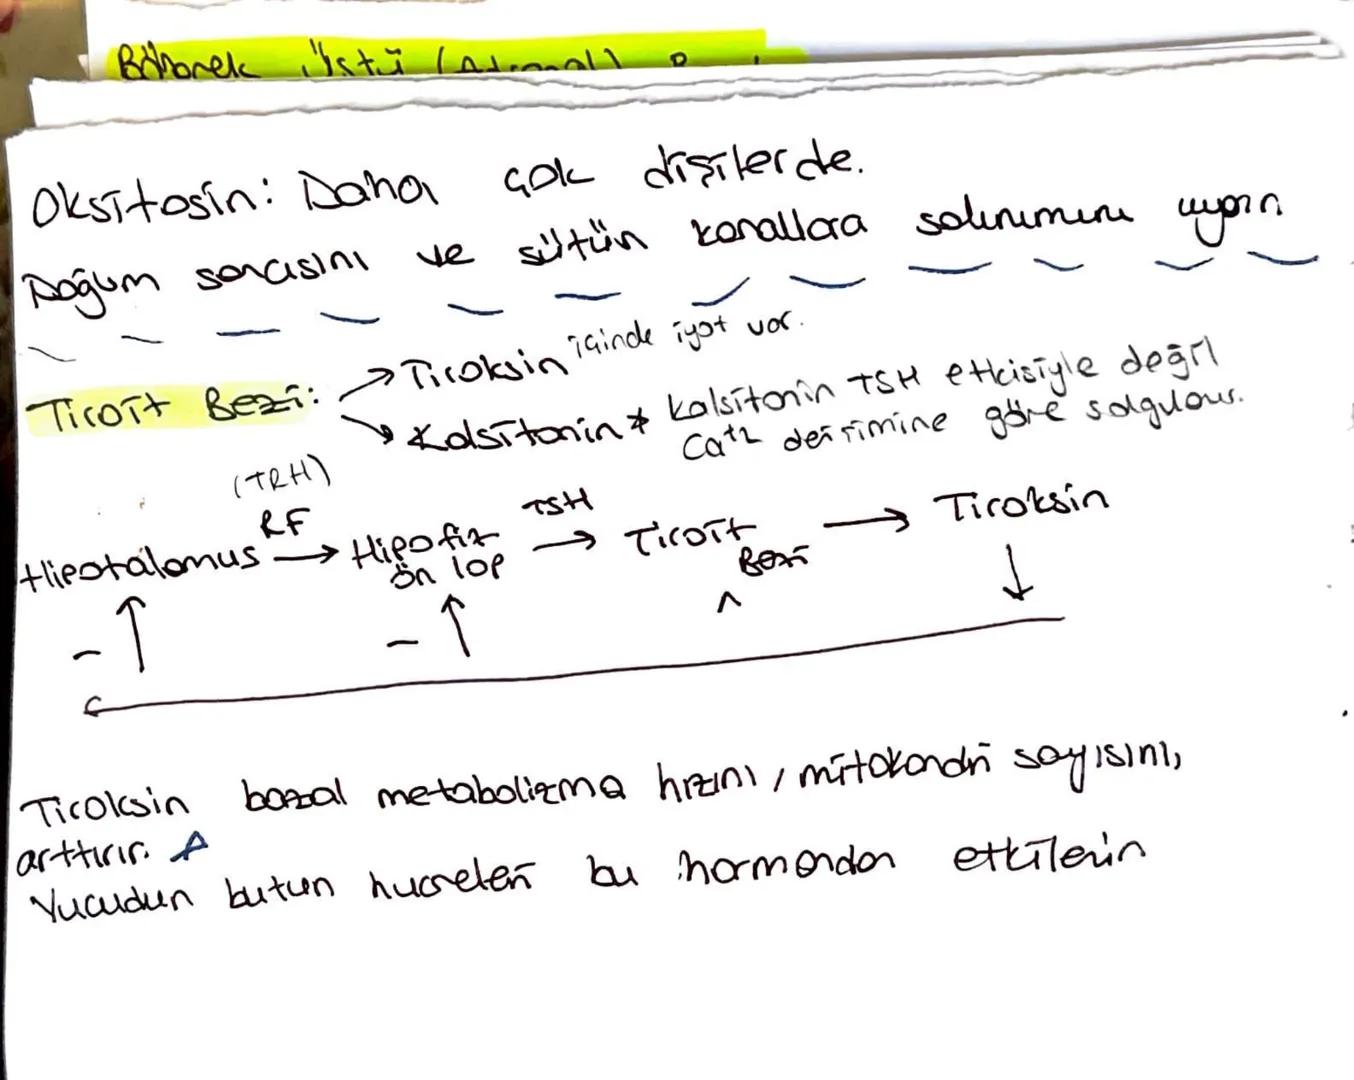 Böbrek Üstü (Adrenal)
Oksitosin: Daha çok dişilerde.
Doğum sancısını ve sütün kanallara salınımını uyarır
Tiroit Bezi: → Tiroksin içinde iyot var.
→ Kalsitonin * Kalsitonin TSH etkisiyle değil
Ca+2 derişimine göre salgılanır.
(TRH)
RF TSH
Hipotalamus → Hipofiz → Tiroit → Tiroksin
ön lop Bezi
- ↑ - ↑ ^ ↓
←
Tiroksin bazal metabolizma hızını, mitokondri sayısını,
arttırır.
Vucudun butun hucreleri bu hormondan etkilenir